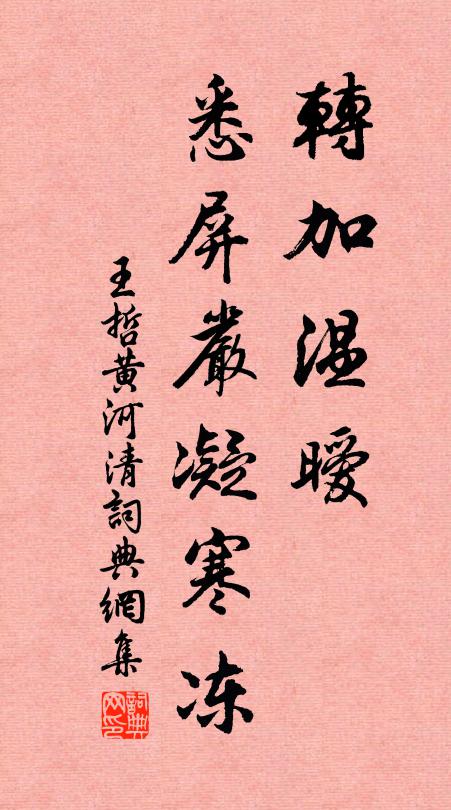 轉加温暧
悉屏嚴凝寒冻
王哲黄河清詞典網集
詞典网印